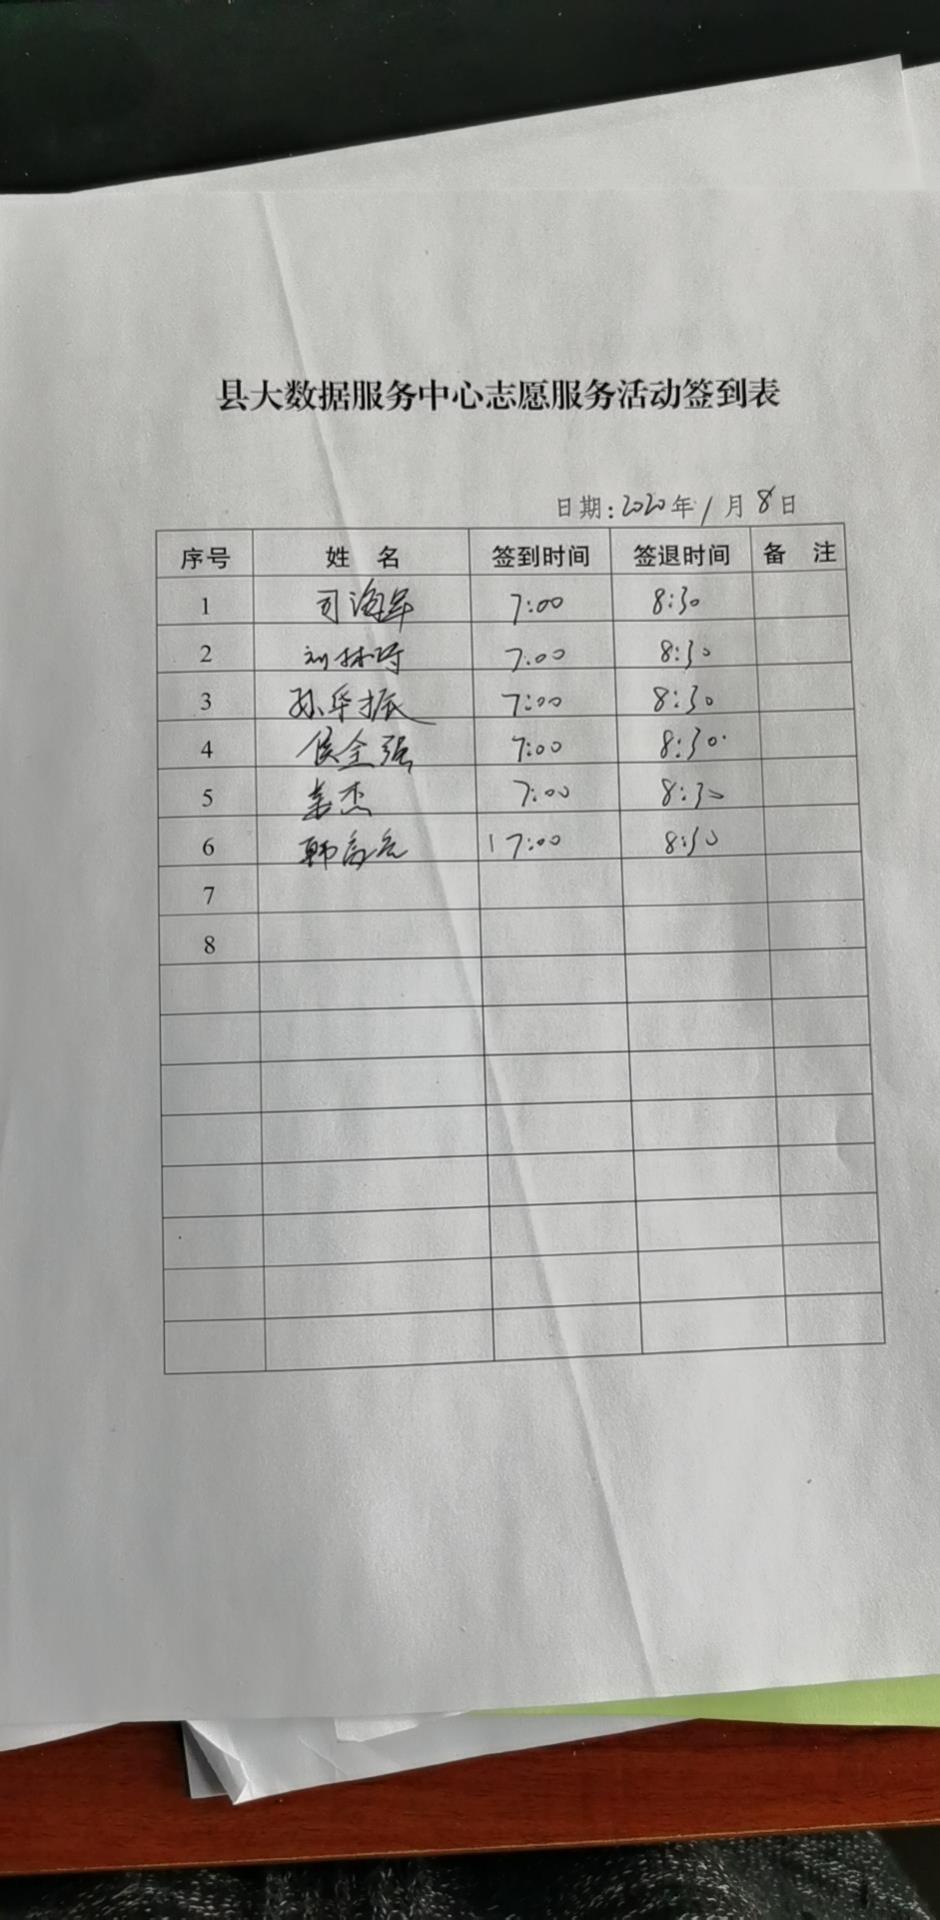 县大数据服务中心志愿服务活动签到表
日期:2020年1月8日
序号 姓名 签到时间 签退时间 备注
1 司海军 7:00 8:30
2 刘林 7:00 8:30
3 孙华振 7:00 8:30
4 侯全强 7:00 8:30
5 杰 7:00 8:30
6 韩 17:00 8:30
7
8